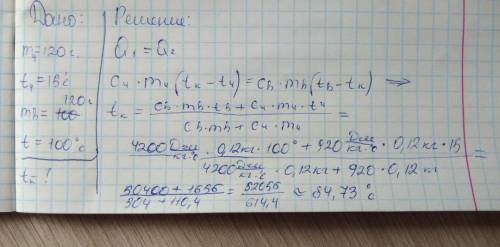 Дано:
m₄=120 г.
t₄=15°c
mв= 120г
t=100°c
tк-?
Решение:
Q₁=Q₂
c₄·m₄(tк-t₄)=cв·mв(tв-tк) ⟹
tк= (cв·mв·tв+c₄·m₄·t₄)/(cв·mв+c₄·m₄) =
(4200 Дж/кг·c · 0,12кг·100°+920 Дж/кг·c · 0,12кг·15)/(4200 Дж/кг·c · 0,12кг+920·0,12кг) =
(50400+1656)/(504+110,4) = 52056/614,4 ≈ 84,73 °c